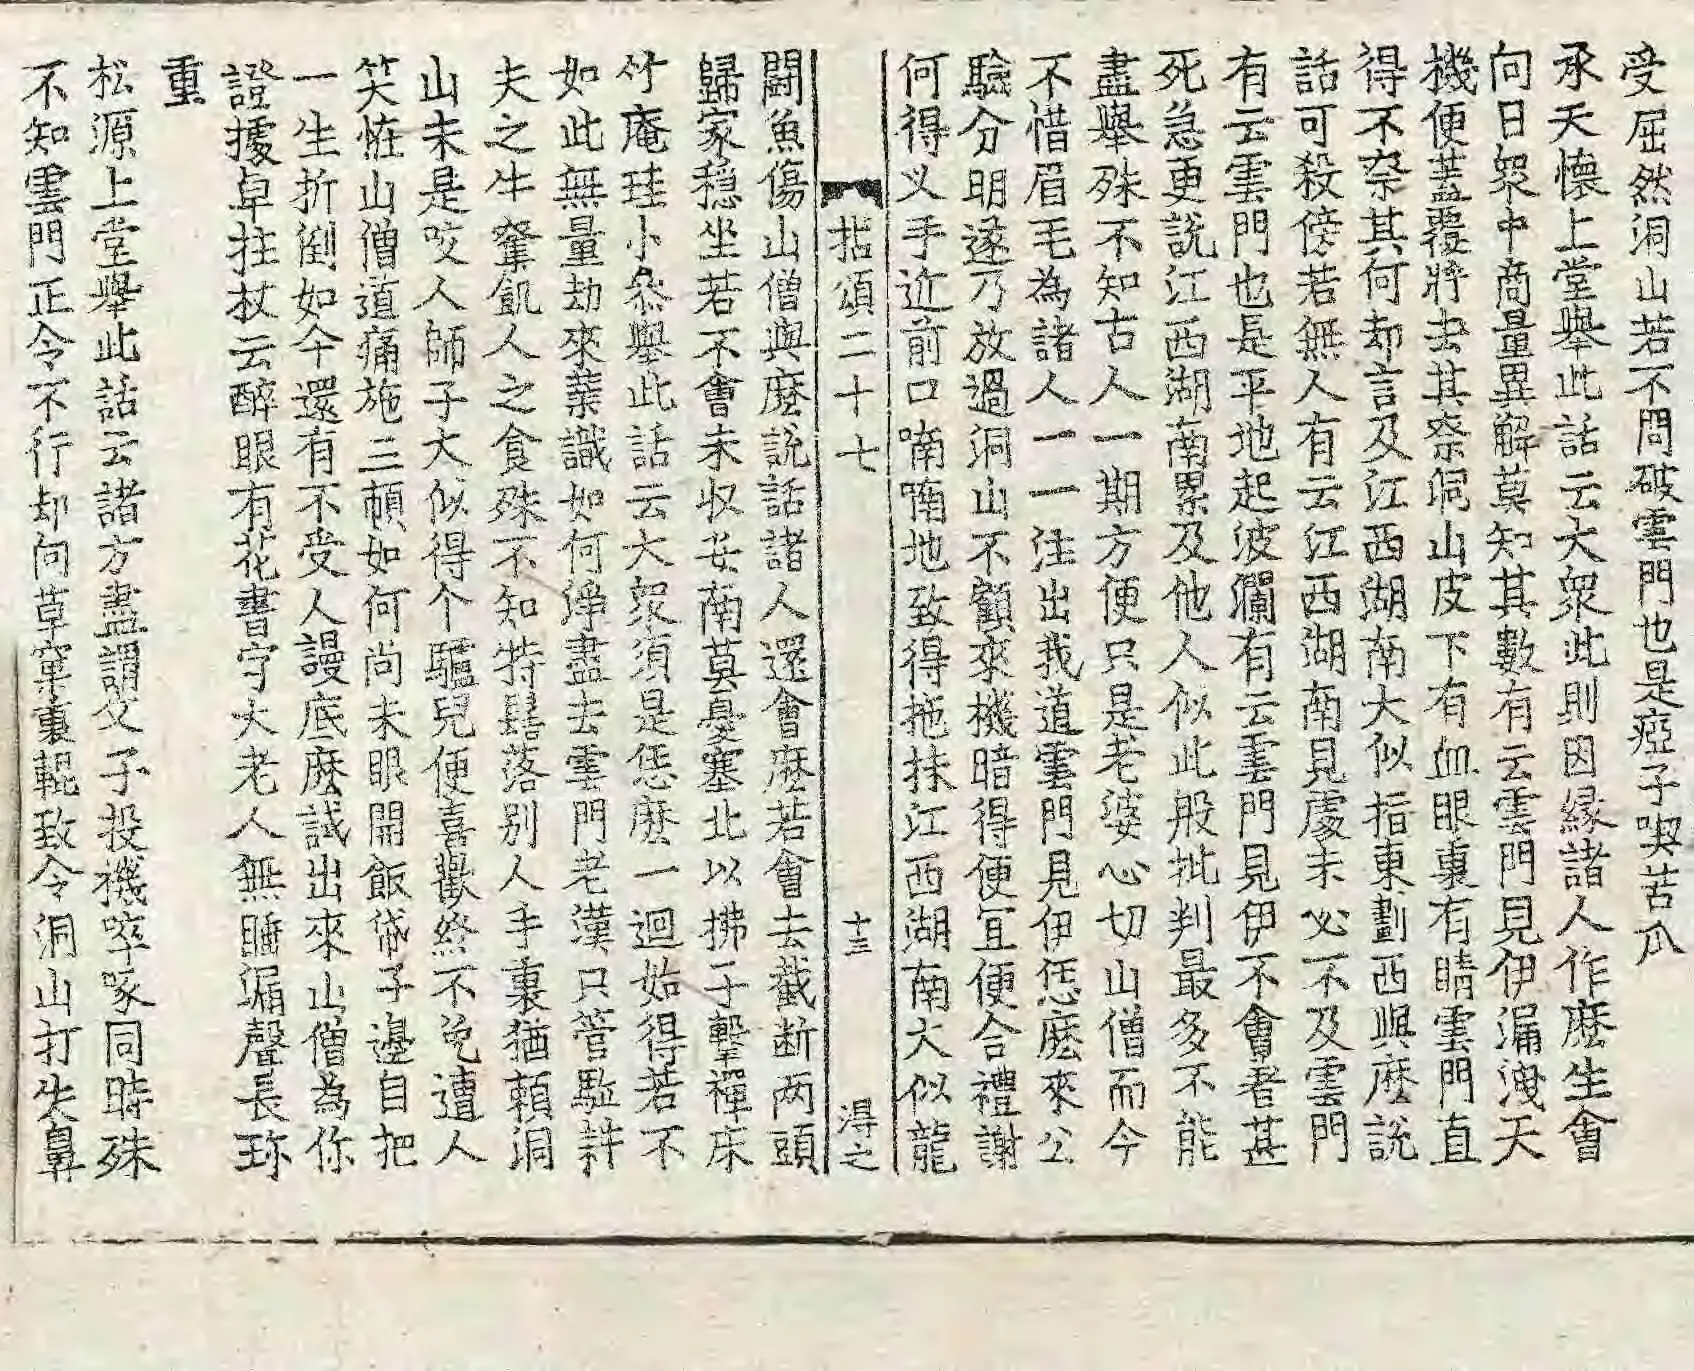 受屈然洞山若不問破雲門也是瘂子喫苦瓜
承天懷上堂舉此話云大衆此則因緣諸人作麽生會
向日衆中商量異解莫知其數有云雲門見伊漏洩天
機便蓋覆將去其柰洞山皮下有血眼裏有睛雲門直
得不柰其何却言及江西湖南大似指東劃西與麽說
話可殺傍若無人有云江西湖南見處未必不及雲門
有云雲門也是平地起波瀾有云雲門見伊不會着甚
死急更說江西湖南累及他人似此般批判最多不能
盡舉殊不知古人一期方便只是老婆心切山僧而今
不惜眉毛為諸人一一注出我道雲門見伊恁麽來公
驗分明遂乃放過洞山不顧來機暗得便冝便合禮謝
何得乂手近前口喃喃地致得拖抹江西湖南大似龍
拈頌二十七 十三 淂之
鬪魚傷山僧與麽說話諸人還會麽若會去截断两頭
歸家穩坐若不會未収安南莫憂塞北以拂子擊禪床
竹庵珪小叅舉此話云大衆須是恁麽一迴始得若不
如此無量劫來業識如何淨盡去雲門老漢只管駈耕
夫之牛奪飢人之食殊不知特髻落别人手裏猶賴洞
山未是咬人師子大似得个驢兒便喜歡終不免遭人
笑恠山僧道痛施三頓如何尚未眼開飯帒子邊自把
一生折倒如今還有不受人謾底麽試出來山僧為你
證據卓拄杖云醉眼有花書字大老人無睡漏聲長珎
重
松源上堂舉此話云諸方盡謂父子投機啐啄同時殊
不知雲門正令不行却向草窠裏輥致令洞山打失鼻